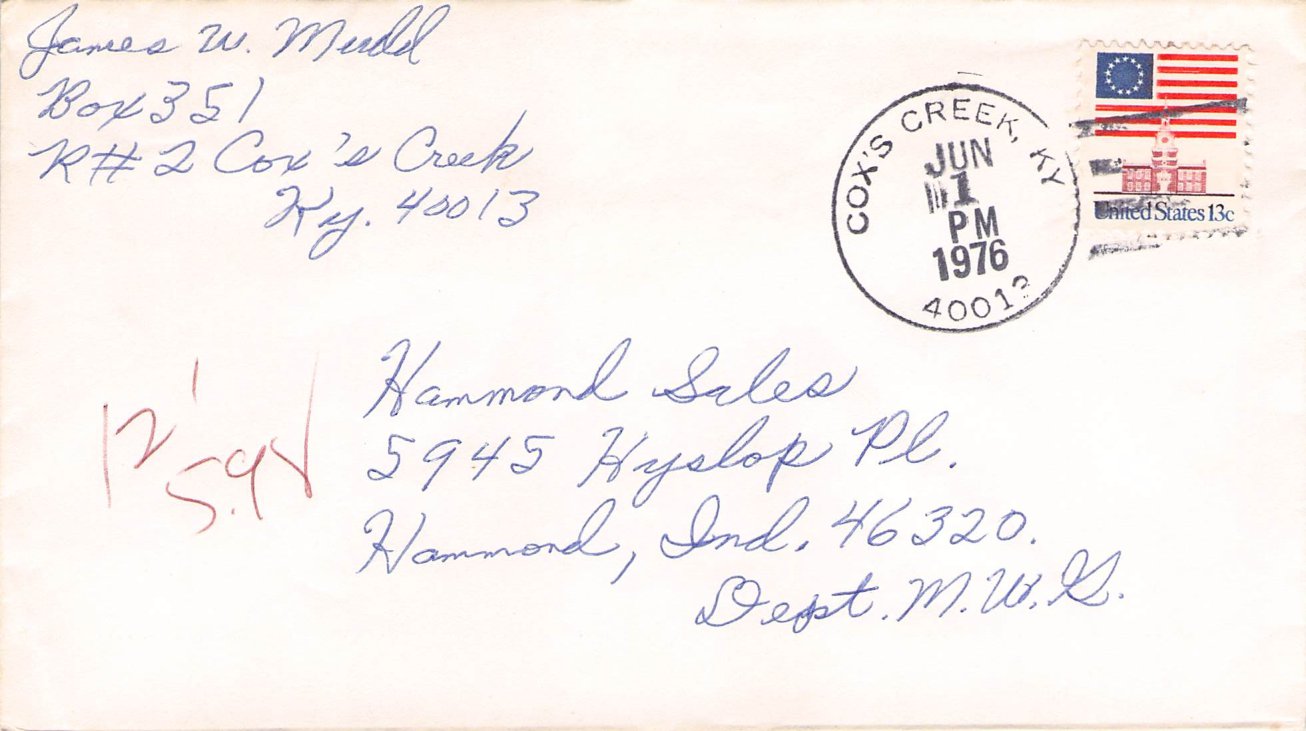 James W. Mudd
Box 351
R # 2 Cox's Creek
Ky. 40013
COX'S CREEK, KY
JUN
1
PM
1976
40013
United States 13c
Hammond Sales
5945 Hyslop Pl.
Hammond, Ind. 46320.
Dept. M.W.G.
12
5.98